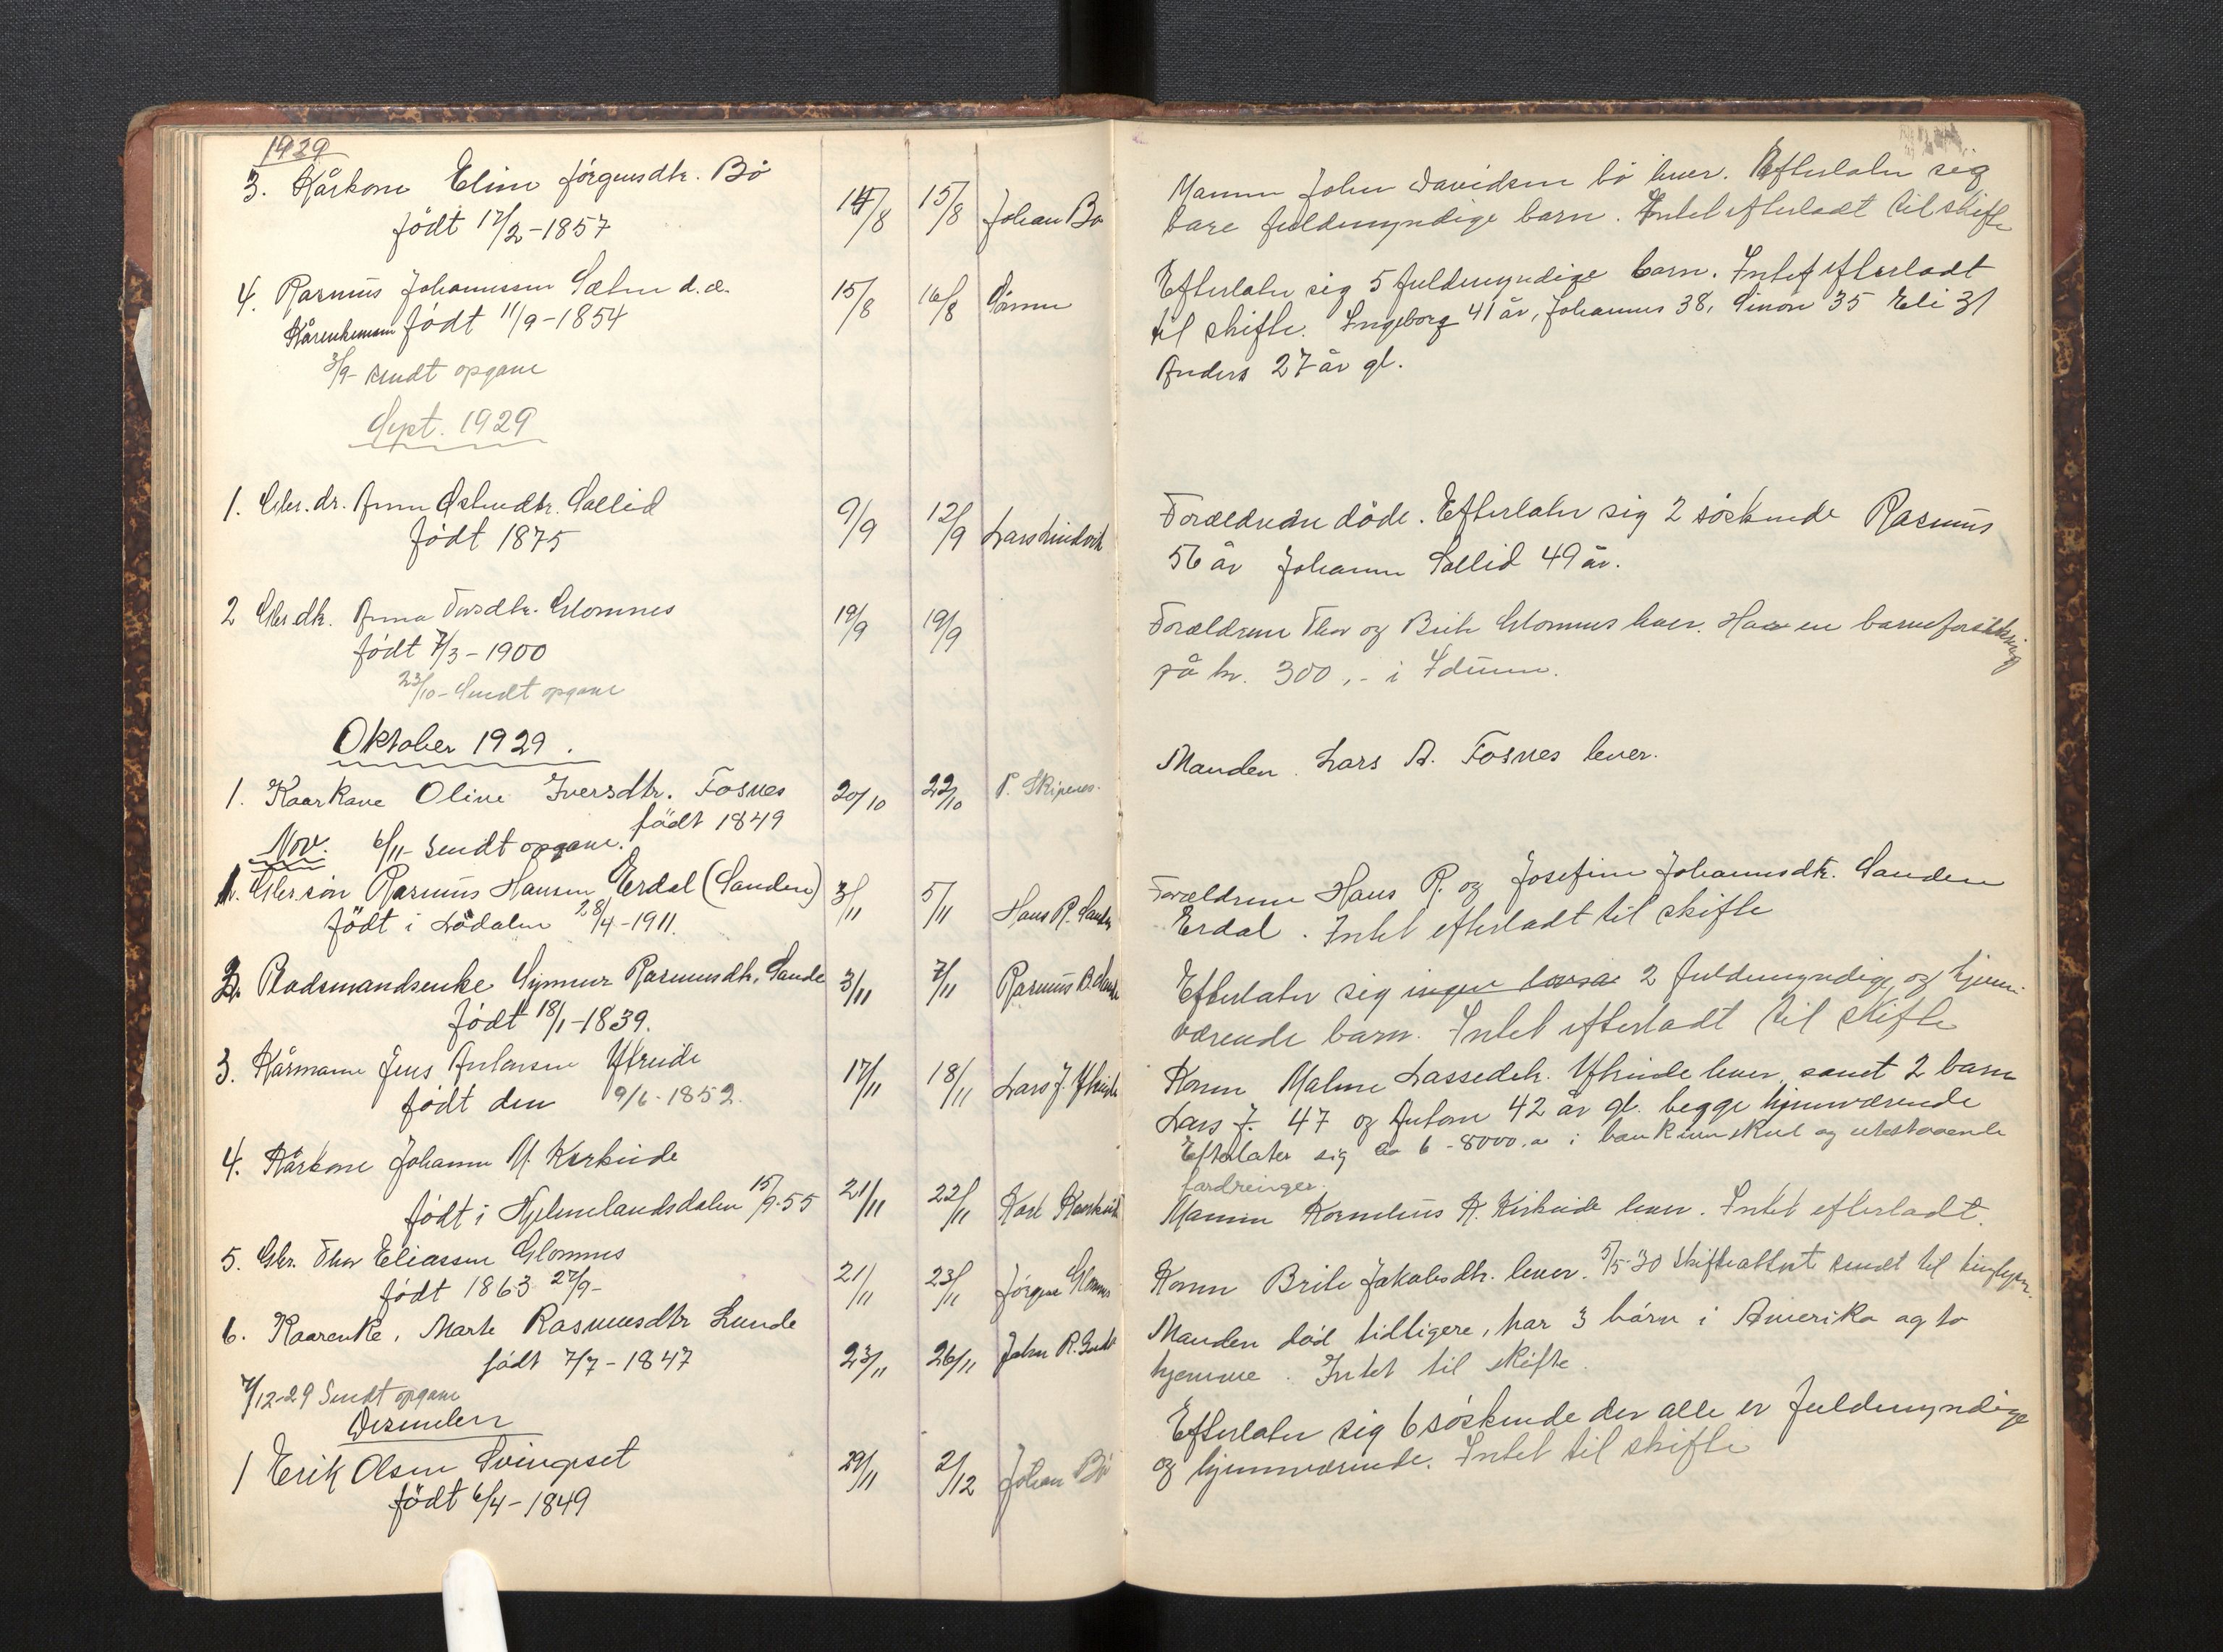 1929
3. Kårkone Eline Jörgensdtr. Bö 14/8 15/8 Johan Bö
født 17/2-1857
Mannen Johan Davidsen bö lever. Efterlater sig
bare fuldmyndige barn. Intet efterladt til skifte
4. Rasmus Johannessen Sæten d.æ. 15/8 16/8 Sönnen
Kårenkemann födt 11/9-1854
3/9 sendt opgave
Efterlater sig 5 fuldmyndige barn. Intet efterladt
til skifte. Ingeborg 41 år, Johannes 38, Simon 35 Eli 31
Anders 27 år gl.
Sept. 1929
1. Gbr. dr. Anna Östendtr. Sollid 9/9 12/9 Lars Lindvik
födt 1875
Forældrene döde. Efterlater sig 2 söskende Rasmus
56 år Johanne Sollid 49 år.
2 Gbr dtr. Anna Torsdtr. Glomnes 19/9 19/9
födt 7/3-1900
23/10- Sendt opgave
Forældrene Thor og Brite Glomnes lever. Har en barneforsikring
på kr. 300,- i Idunn.
Oktober 1929.
1. Kaarkone Oline Iversdtr. Fosnes 20/10 22/10 P. Skipenes.
født 1849
Manden Lars A. Fosnes lever.
Nov. 6/11 Sendt opgave.
1. Gbr sön Rasmus Hansen Erdal (Sanden) 3/11 5/11 Hans R. Sanden
födt i Lödalen 28/4-1911.
Forældrene Hans R. og Josefine Johannesdtr. Sanden
Erdal. Intet efterladt til skifte
2. Pladsmandsenke Synneve Rasmusdtr. Sande 3/11 7/11 Rasmus B. Sande
födt 18/1-1839.
Efterlater sig ingen 2 fuldmyndige og hjemme-
værende barn. Intet efterladt til skifte
3. Kårmann Jens Antonsen Yttreide 17/11 18/11 Lars J. Yttreide
födt den 9/6-1852.
Konen Malene Lassedtr. Yttreide lever, samt 2 barn
Lars J. 47 og Antone 42 år gl. begge hjemmværende
Efterlater sig ca 6-8000.- i bankinnskud og utestaaende
fordringer.
4. Kårkone Johanne M. Kirkeide 21/11 22/11 Karl Kirkeide
födt i Hjelmelandsdalen 15/9-55
Mannen Kornelius K. Kirkeide lever. Intet efterladt.
5. Gbr. Thor Eliassen Glomnes 21/11 23/11 Jörgen Glomnes
födt 1863 27/9-
Konen Brite Jakobsdtr. lever. 5/5-30 Skifteattest sendt til tinglysn.
6. Kaarenke, Marte Rasmusdtr Lunde 23/11 26/11 John R. Lunde
født 7/7-1847
Manden død tidligere, har 3 börn i Amerika og to
hjemme. Intet til skifte.
7/12-29 Sendt opgave
Desember
1 Erik Olsen Svingset 29/11 2/12 Johan Bö
födt 6/4-1849
Efterlater sig 6 söskende der alle er fuldmyndige
og hjemmværende. Intet til skifte